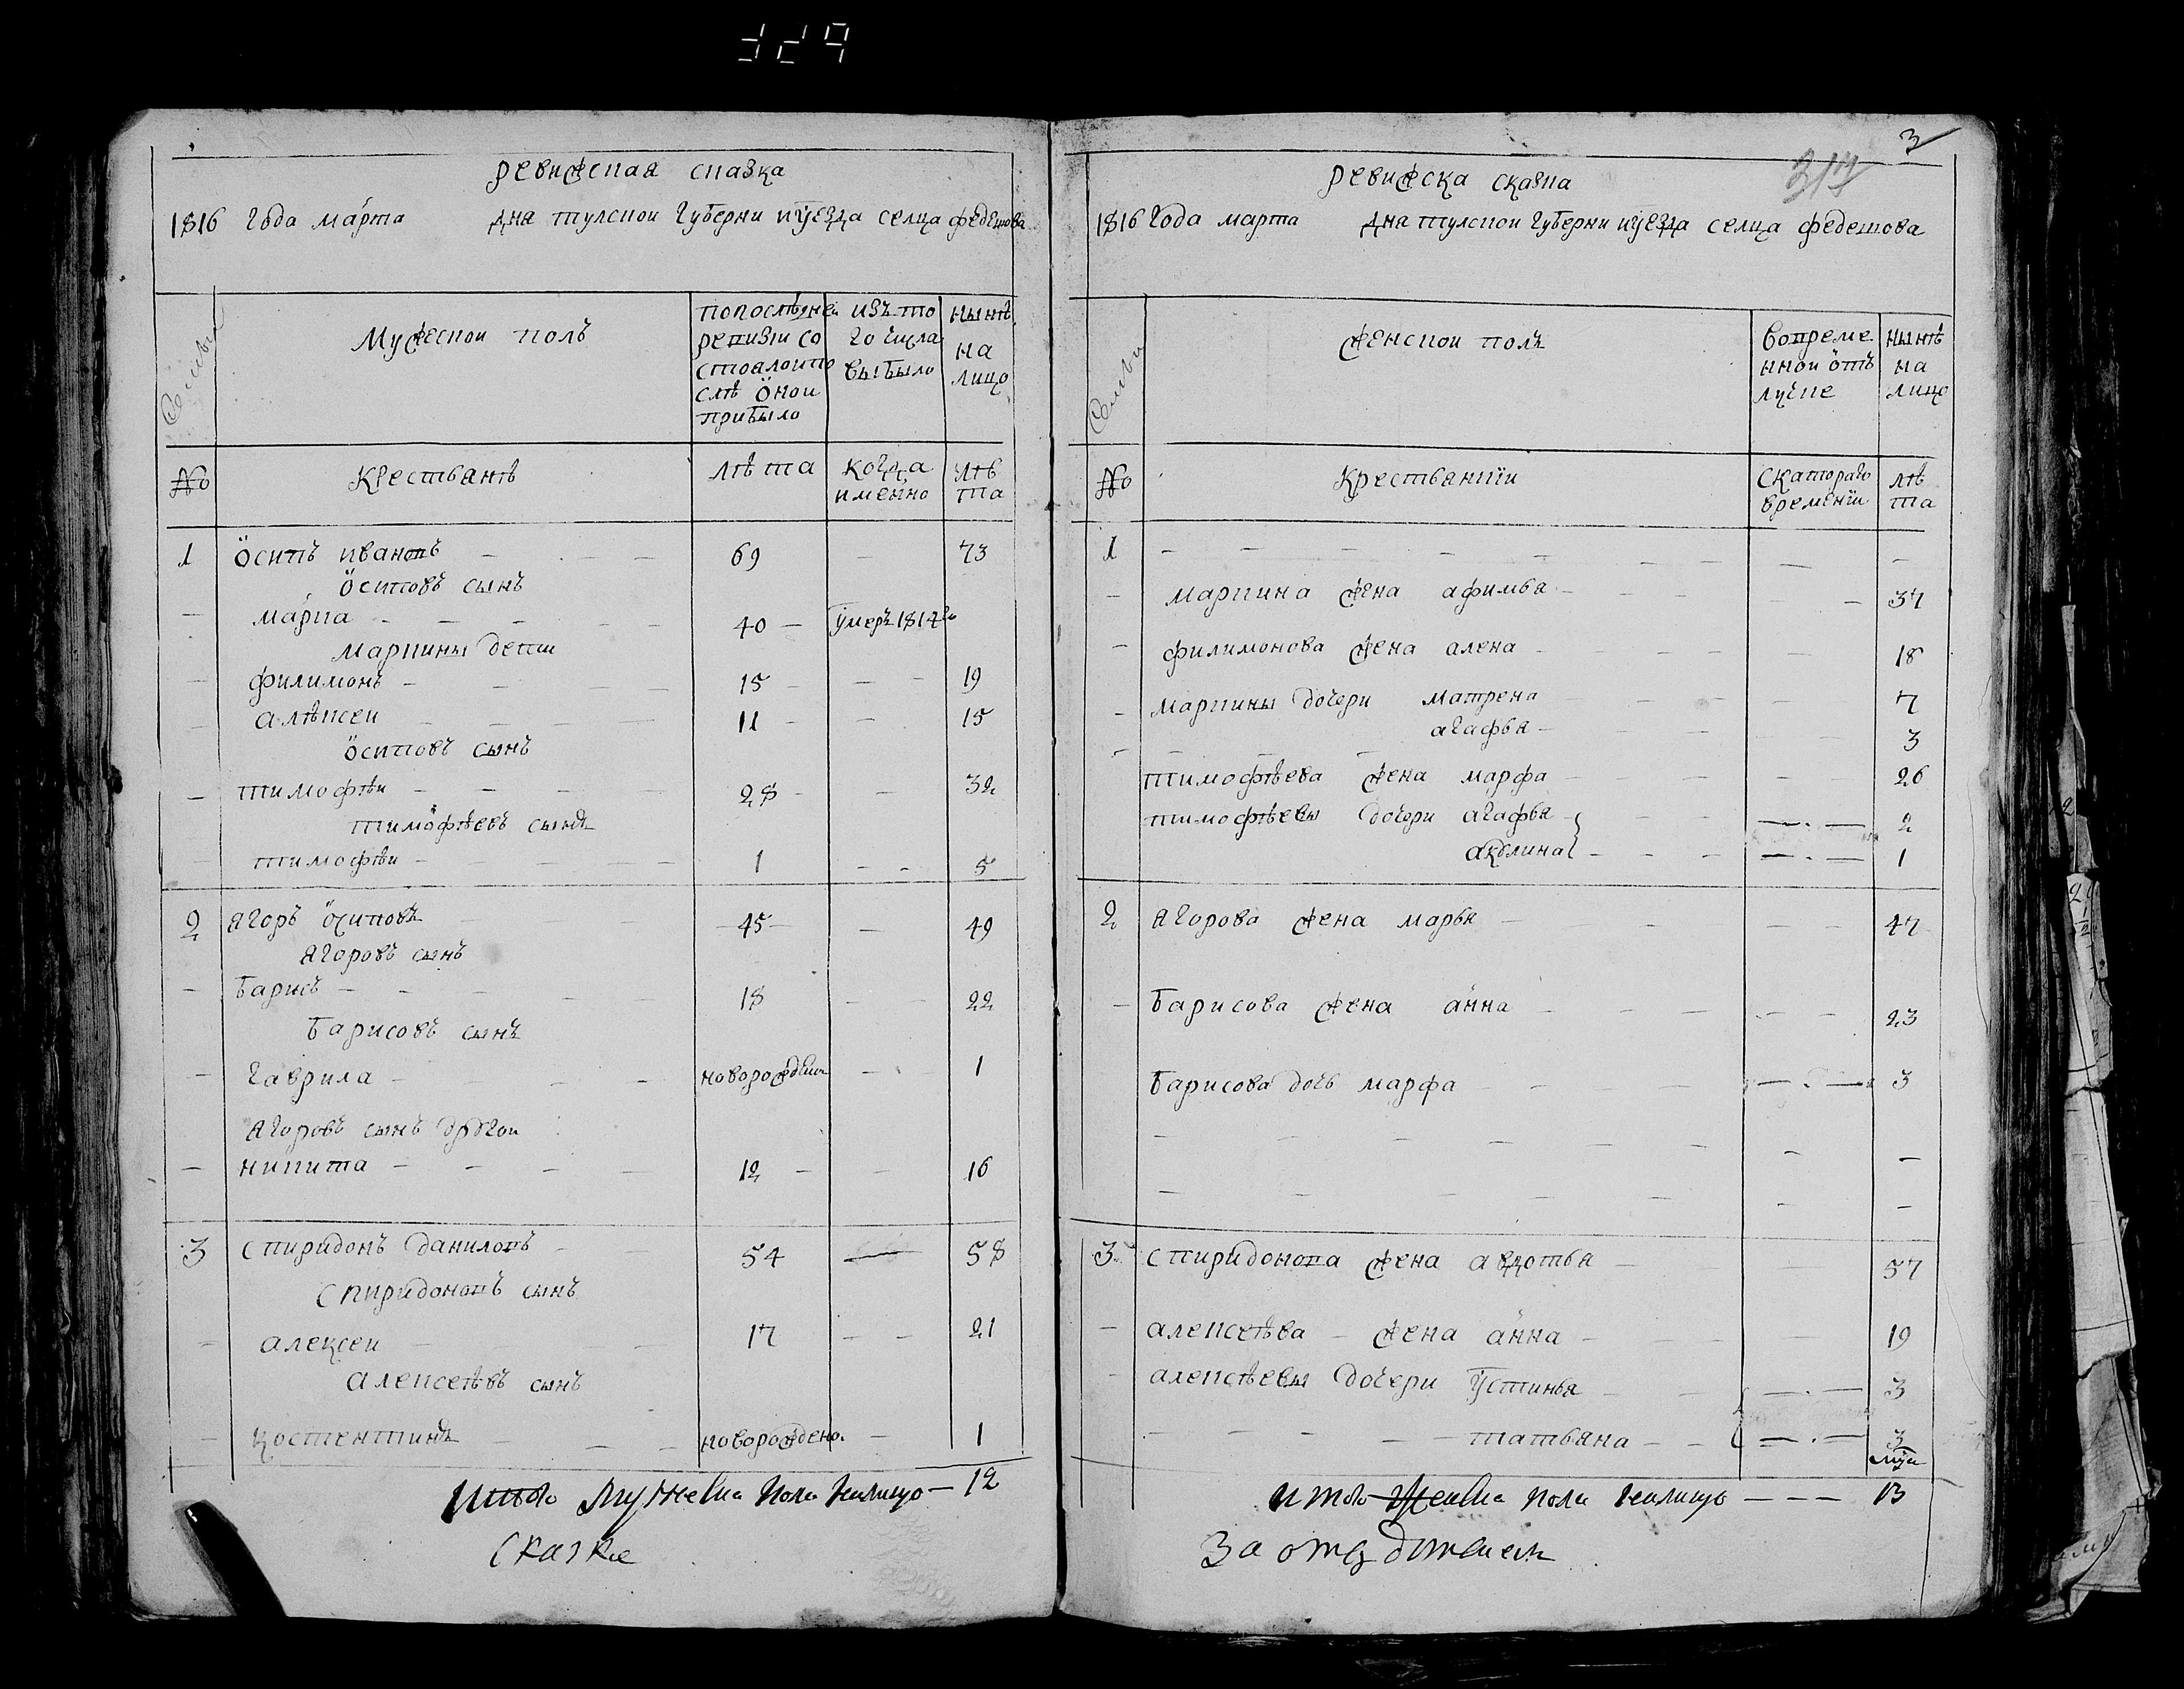 ревижская сказка
1816 года марта дня тулской губерни иуезда селца федешова
Семьи
Мужеской полъ
попослѣдней ревизи состоялоипослѣ оной прибыло
изъ того числа выбыло
нынѣ на лицо
№ Крестьянѣ лѣта когда именно лѣта
1 осипъ ивановъ 69 73
осиповъ сынъ
марка 40 умеръ 1814го
маркины дети
филимонъ 15 19
алѣксеи 11 15
осиповъ сынъ
тимофѣи 28 32
тимофѣевъ сынъ
тимофѣи 1 5
2 ягоръ осиповъ 45 49
ягоровъ сынъ
барисъ 18 22
барисовъ сынъ
гаврила новорожден 1
ягоровъ сынъ другои
никита 12 16
3 спиридонъ даниловъ 54 58
спиридоновъ сынъ
алексеи 17 21
алексеѣвъ сынъ
костентинъ новорождено 1
Итого мужеска пола налицо 12
Сказке
3
317
ревижска сказка
1816 года марта дня тулской губерни иуезда селца федешова
Семьи
женской полъ
вовременной отлучке
нынѣ на лицо
№ Крестьянки скатораго времени лѣта
1
маркина жена афимья 37
филимонова жена алена 18
маркины дочери матрена 7
агафья 3
тимофѣева жена марфа 26
тимофѣевы дочери агафья 2
акулина 1
2 ягорова жена марья 47
барисова жена анна 23
барисова дочь марфа 3
3 спиридонова жена авдотья 57
алексеѣва жена анна 19
алексѣевы дочери устинья 3
татьяна 3
итого женска пола налицо 13